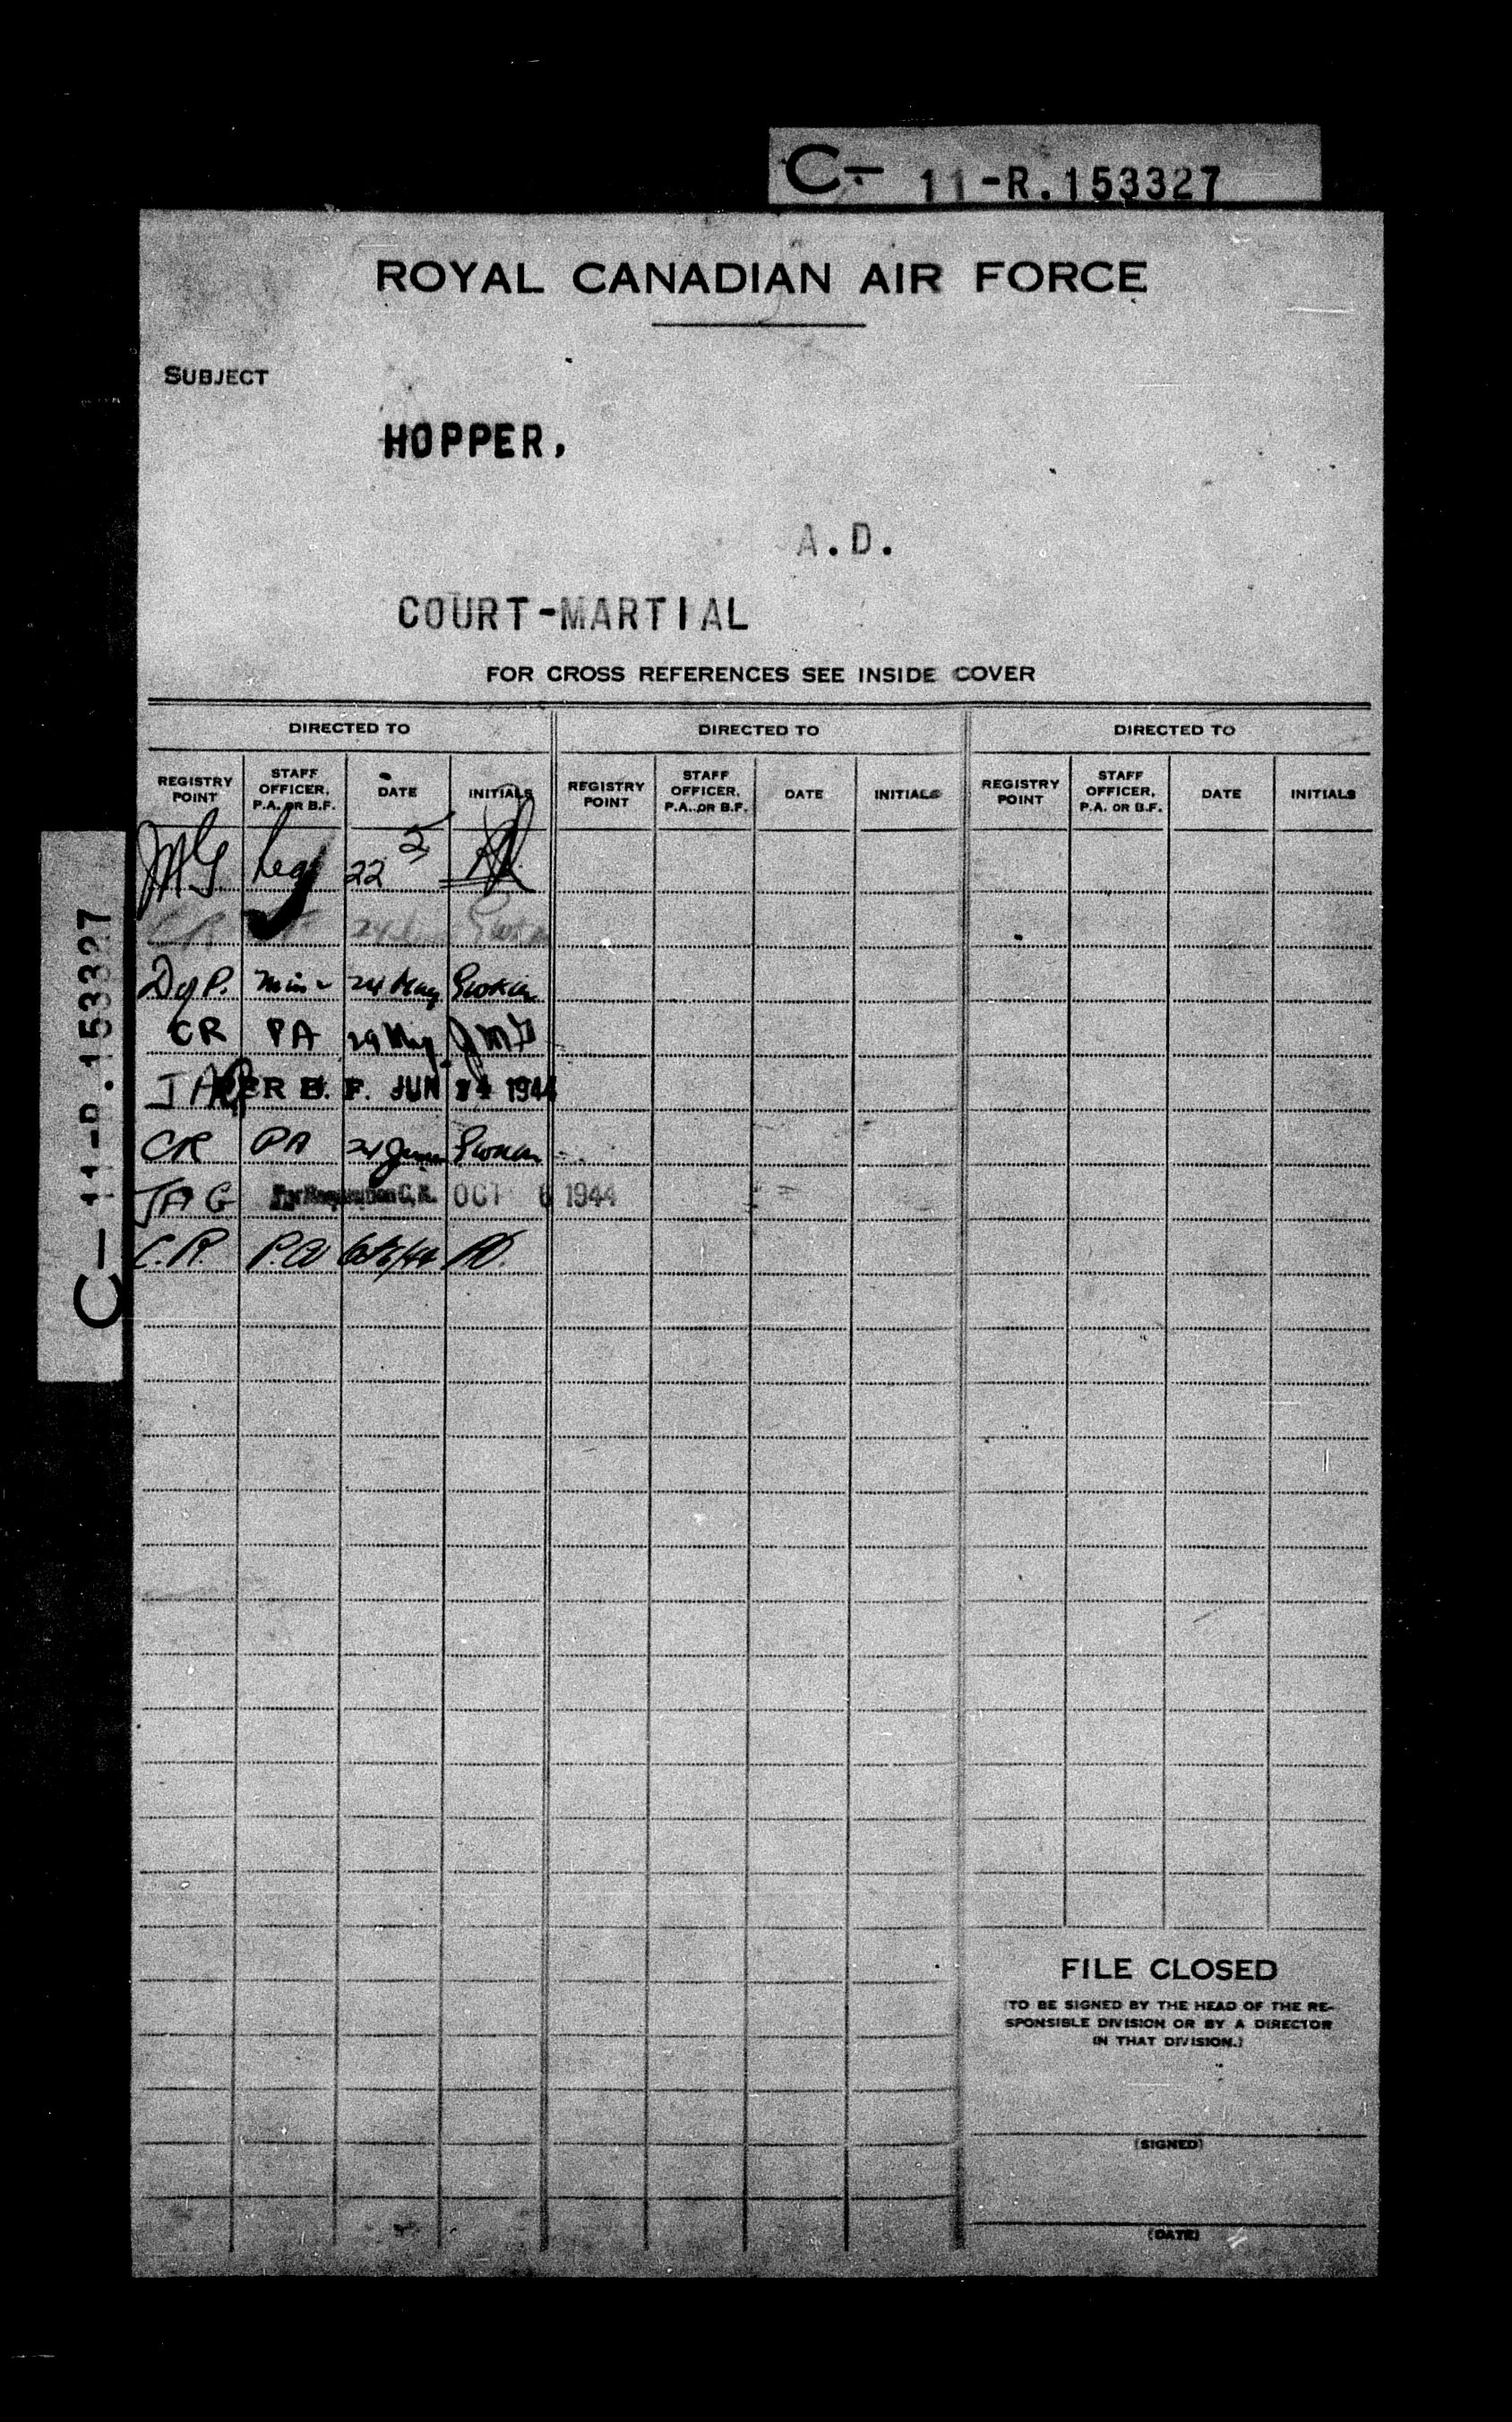 C- 11-R.153327
ROYAL CANADIAN AIR FORCE
SUBJECT
HOPPER,
A.D.
COURT-MARTIAL
FOR CROSS REFERENCES SEE INSIDE COVER
DIRECTED TO DIRECTED TO DIRECTED TO
REGISTRY POINT STAFF OFFICER, P.A. OR B.F. DATE INITIALS REGISTRY POINT STAFF OFFICER, P.A. OR B.F. DATE INITIALS REGISTRY POINT STAFF OFFICER, P.A. OR B.F. DATE INITIALS
22
D of P. 24 May
CR PA 29 May JMG
JAG PER B. F. JUN 24 1944
CR PA 24 June
JAG For Requisition C.R. OCT 6 1944
C.R. P.A
C- 11-R.153327
FILE CLOSED
(TO BE SIGNED BY THE HEAD OF THE RE-
SPONSIBLE DIVISION OR BY A DIRECTOR
IN THAT DIVISION.)
(SIGNED)
(DATE)